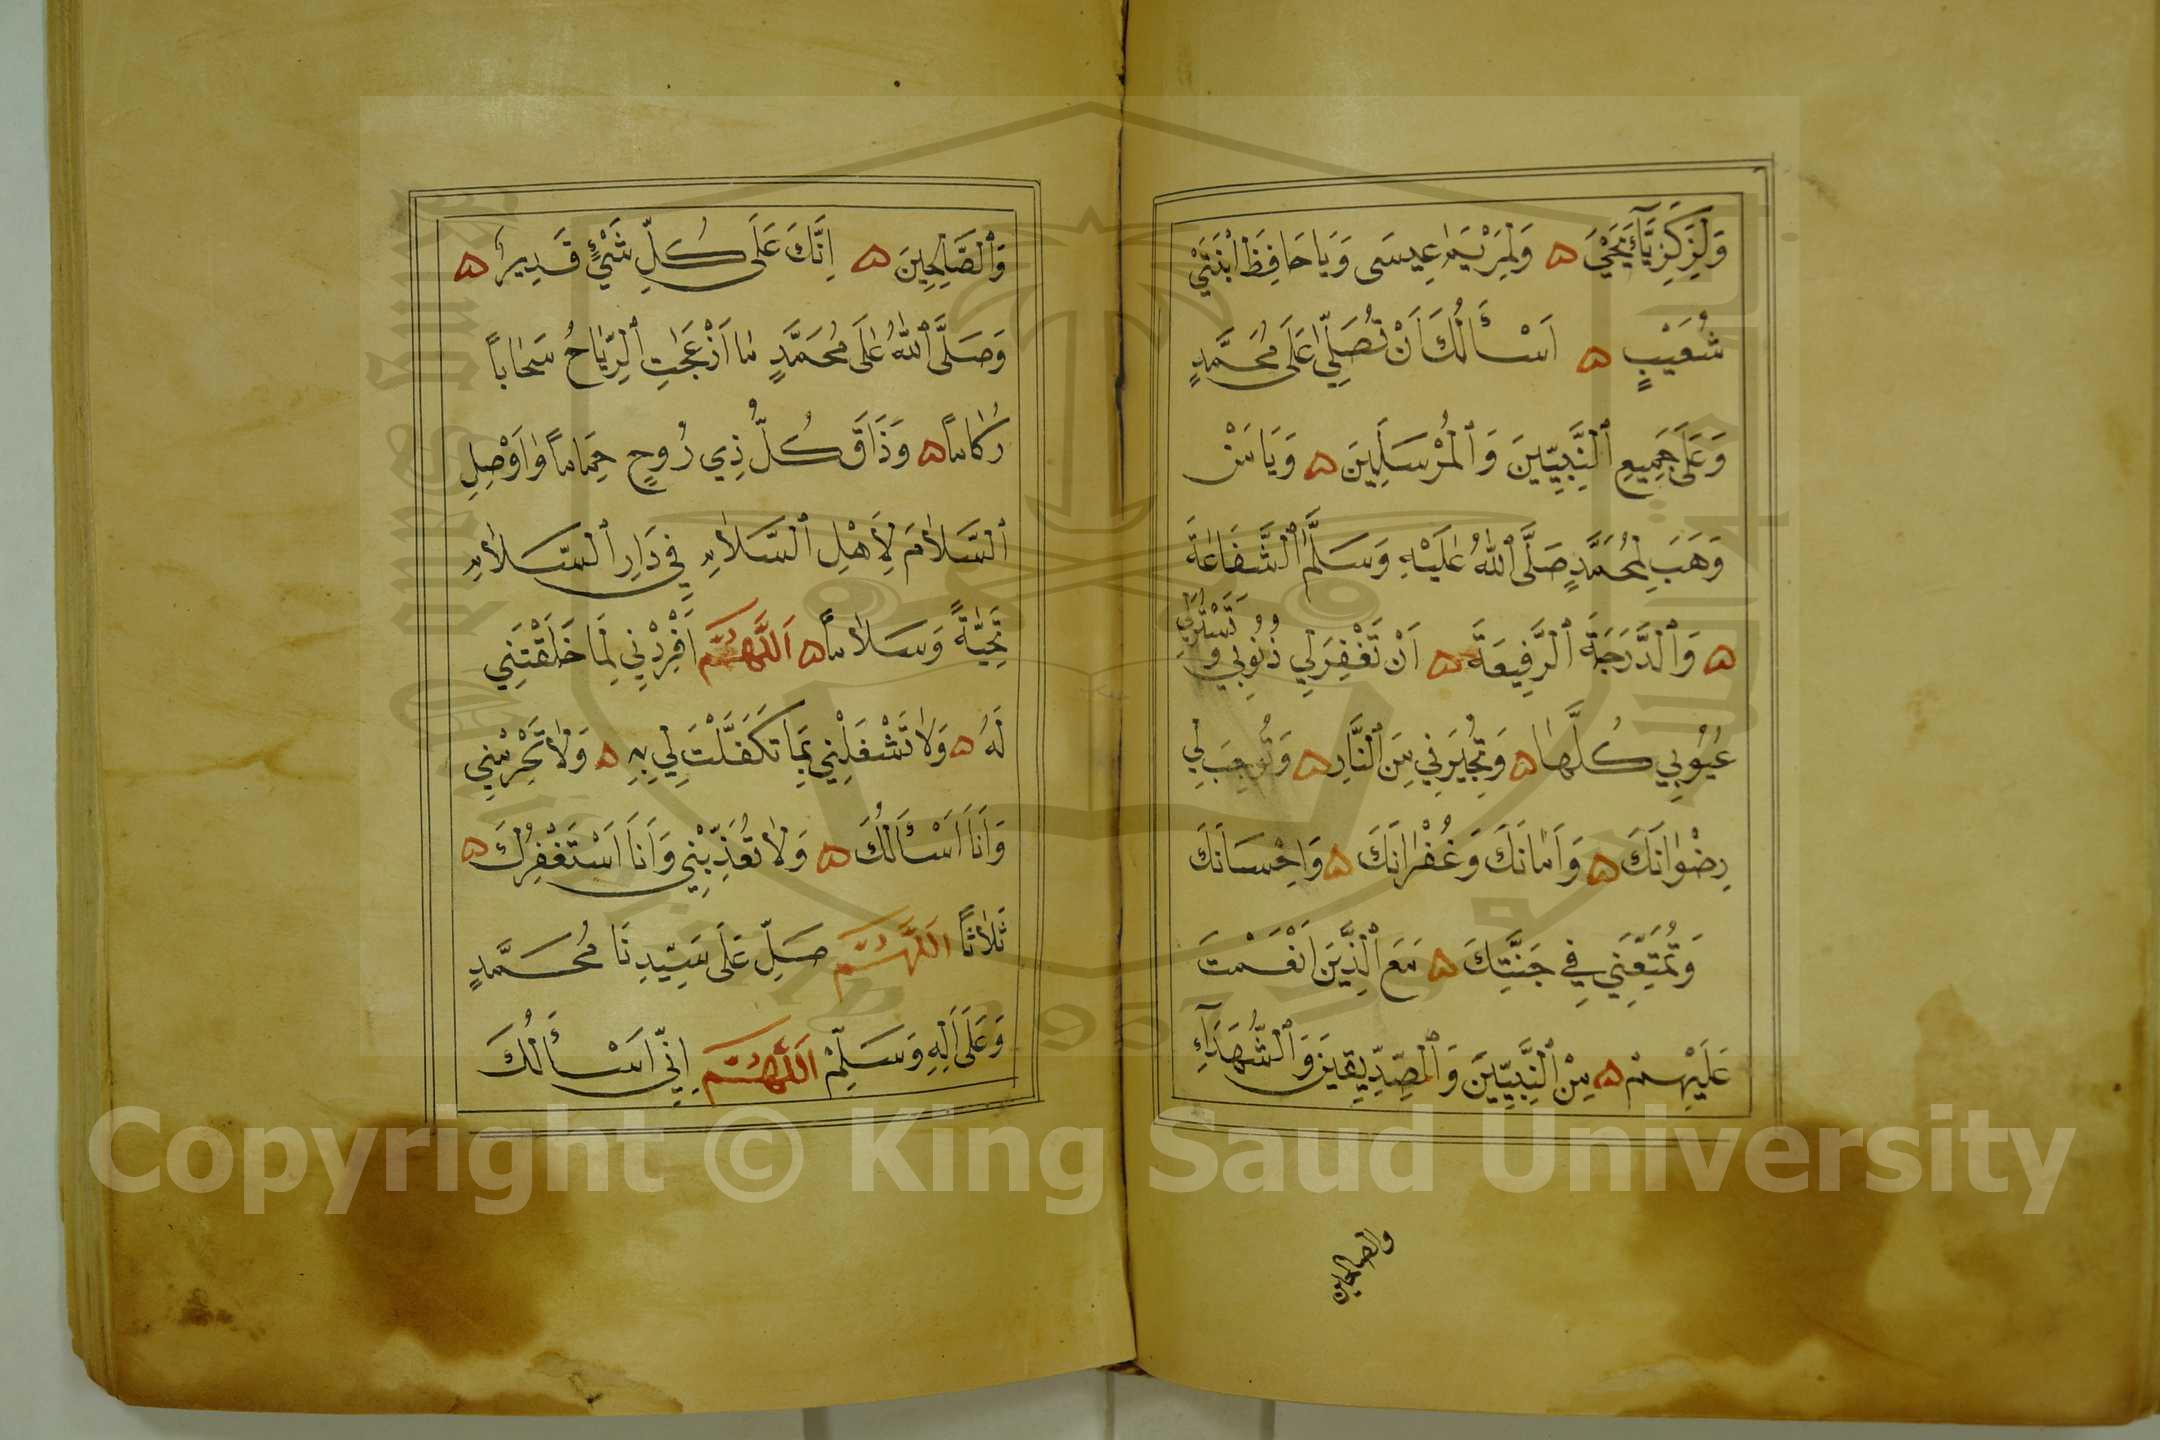 وَلِزَكَرِيَّآءَ يَحْيَىٰ ۞ وَلِمَرْيَمَ عِيسَى وَيَا حَافِظَ ابْنَتَيْ
شُعَيْبٍ ۞ اَسْأَلُكَ اَنْ تُصَلِّيَ عَلَى مُحَمَّدٍ
وَعَلَى جَمِيعِ ٱلنَّبِيِّينَ وَٱلْمُرْسَلِينَ ۞ وَيَا مَنْ
وَهَبَ لِمُحَمَّدٍ صَلَّى ٱللهُ عَلَيْهِ وَسَلَّمَ ٱلشَّفَاعَةَ
۞ وَٱلدَّرَجَةَ ٱلرَّفِيعَةَ ۞ اَنْ تَغْفِرَ لِي ذُنُوبِي وَتَسْتُرَ لِي
عُيُوبِي كُلَّهَا ۞ وَتُجِيرَنِي مِنَ ٱلنَّارِ ۞ وَتُوجِبَ لِي
رِضْوَانَكَ ۞ وَاَمَانَكَ وَغُفْرَانَكَ ۞ وَاِحْسَانَكَ
وَتُمَتِّعَنِي فِي جَنَّتِكَ ۞ مَعَ ٱلَّذِينَ اَنْعَمْتَ
عَلَيْهِمْ ۞ مِنَ ٱلنَّبِيِّينَ وَٱلصِّدِّيقِينَ وَٱلشُّهَدَآءِ
والصالحين
وَٱلصَّالِحِينَ ۞ اِنَّكَ عَلَى كُلِّ شَيْءٍ قَدِيرٌ ۞
وَصَلَّى ٱللهُ عَلَى مُحَمَّدٍ مَا اَزْعَجَتِ ٱلرِّيَاحُ سَحَابًا
رُكَامًا ۞ وَذَاقَ كُلُّ ذِي رُوحٍ حِمَامًا وَاَوْصِلِ
ٱلسَّلَامَ لِاَهْلِ ٱلسَّلَامِ فِي دَارِ ٱلسَّلَامِ
تَحِيَّةً وَسَلَامًا ۞ اَللَّهُمَّ اَفْرِدْنِي لِمَا خَلَقْتَنِي
لَهُ ۞ وَلَا تَشْغَلْنِي بِمَا تَكَفَّلْتَ لِي بِهِ ۞ وَلَا تَحْرِمْنِي
وَاَنَا اَسْأَلُكَ ۞ وَلَا تُعَذِّبْنِي وَاَنَا اَسْتَغْفِرُكَ ۞
ثَلَاثًا اَللَّهُمَّ صَلِّ عَلَى سَيِّدِنَا مُحَمَّدٍ
وَعَلَى اٰلِهِ وَسَلِّمْ اَللَّهُمَّ اِنِّي اَسْأَلُكَ
Copyright © King Saud University